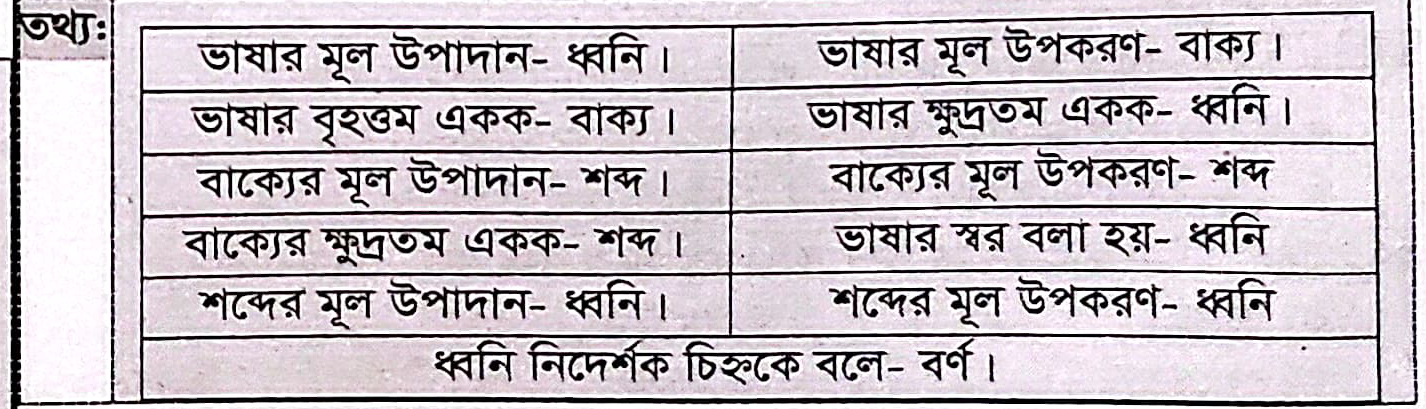 তথ্য:
ভাষার মূল উপাদান- ধ্বনি। ভাষার মূল উপকরণ- বাক্য।
ভাষার বৃহত্তম একক- বাক্য। ভাষার ক্ষুদ্রতম একক- ধ্বনি।
বাক্যের মূল উপাদান- শব্দ। বাক্যের মূল উপকরণ- শব্দ
বাক্যের ক্ষুদ্রতম একক- শব্দ। ভাষার স্বর বলা হয়- ধ্বনি
শব্দের মূল উপাদান- ধ্বনি। শব্দের মূল উপকরণ- ধ্বনি
ধ্বনি নিদের্শক চিহ্নকে বলে- বর্ণ।